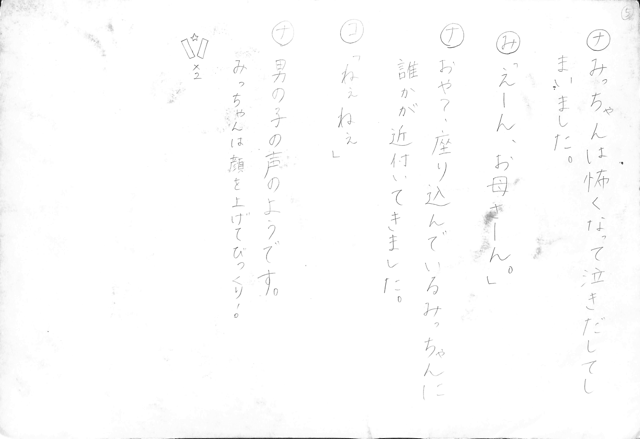 ⑤
ナ みっちゃんは怖くなって泣きだしてし
まいました。
み「えーん、お母さーん。」
ナ おやっ、座り込んでいるみっちゃんに
誰かが近付いてきました。
コ「ねぇねぇ」
ナ 男の子の声のようです。
みっちゃんは顔を上げてびっくり!。
×2